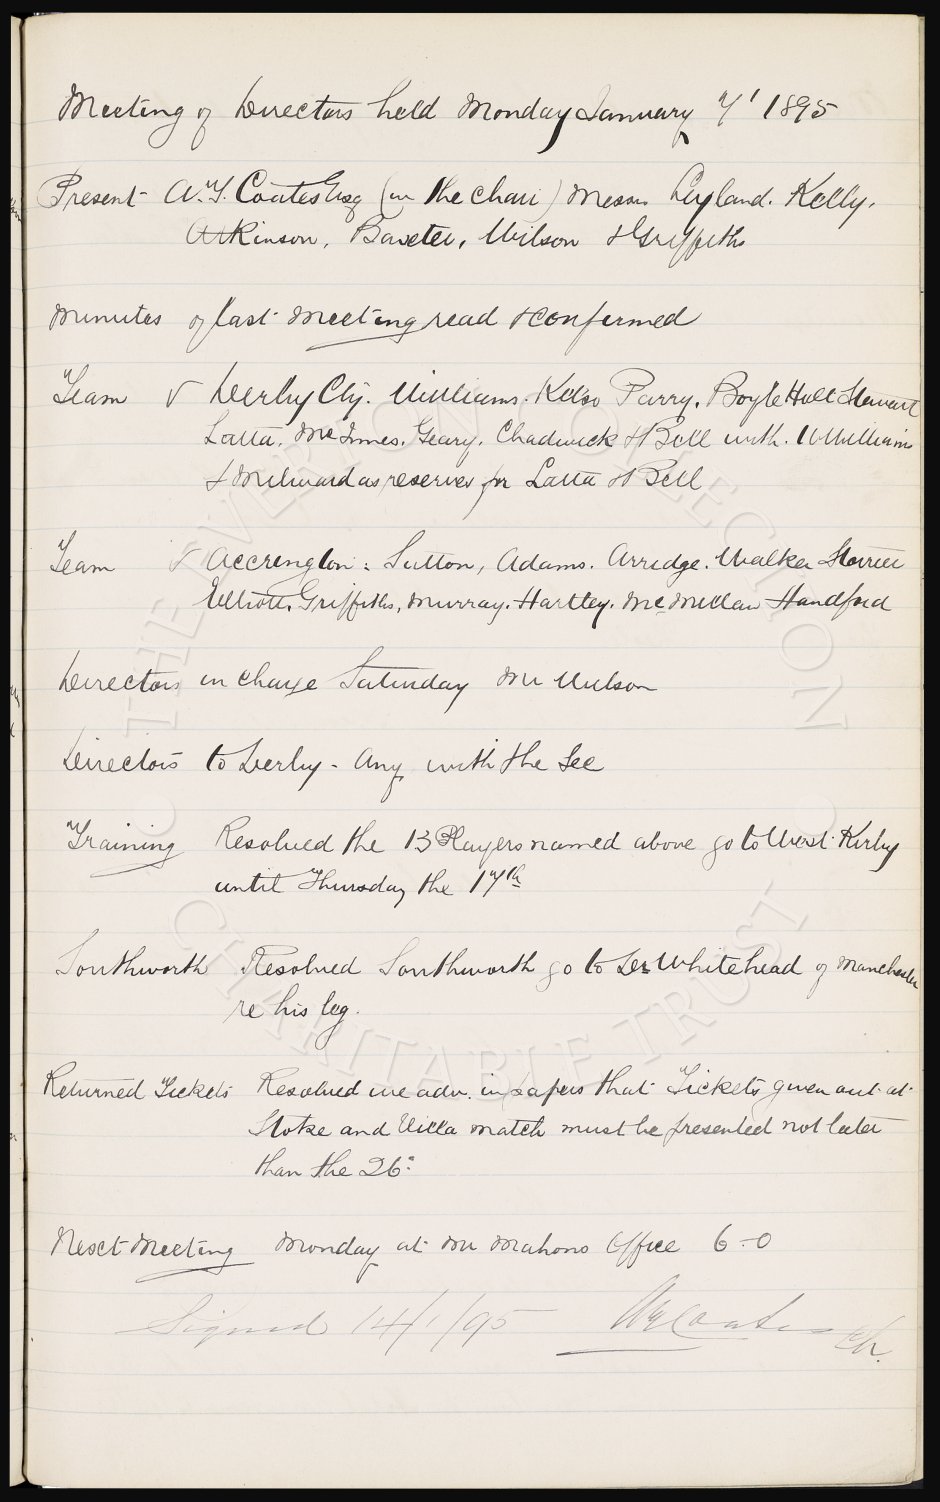 Meeting of Directors held Monday January 7' 1895
Present A.Y. Coates Esq (in the chair) Messrs Leyland. Kelly.
Atkinson, Baxter, Wilson & Griffiths
Minutes of last Meeting read & confirmed
Team v Derby Cty. Williams. Kelso Parry. Boyle Holt Stewart
Latta. McInnes. Geary. Chadwick & Bell with. W Williams
& Milward as reserves for Latta & Bell
Team v Accrington: Sutton, Adams. Arridge. Walker Storrier
Elliott. Griffiths, Murray. Hartley. McMillan Handford
Directors in charge Saturday Mr Wilson
Directors to Derby - Any with the Sec
Training Resolved the 13 Players named above go to West Kirby
until Thursday the 17th
Southworth Resolved Southworth go to Dr Whitehead of Manchester
re his leg.
Returned Tickets Resolved we adv. in papers that Tickets given out at
Stoke and Villa match must be presented not later
than the 26"
Next Meeting Monday at Mr Mahons Office 6-0
Signed 14/1/95 Coates Ch.
THE EVERTON COLLECTION
CHARITABLE TRUST